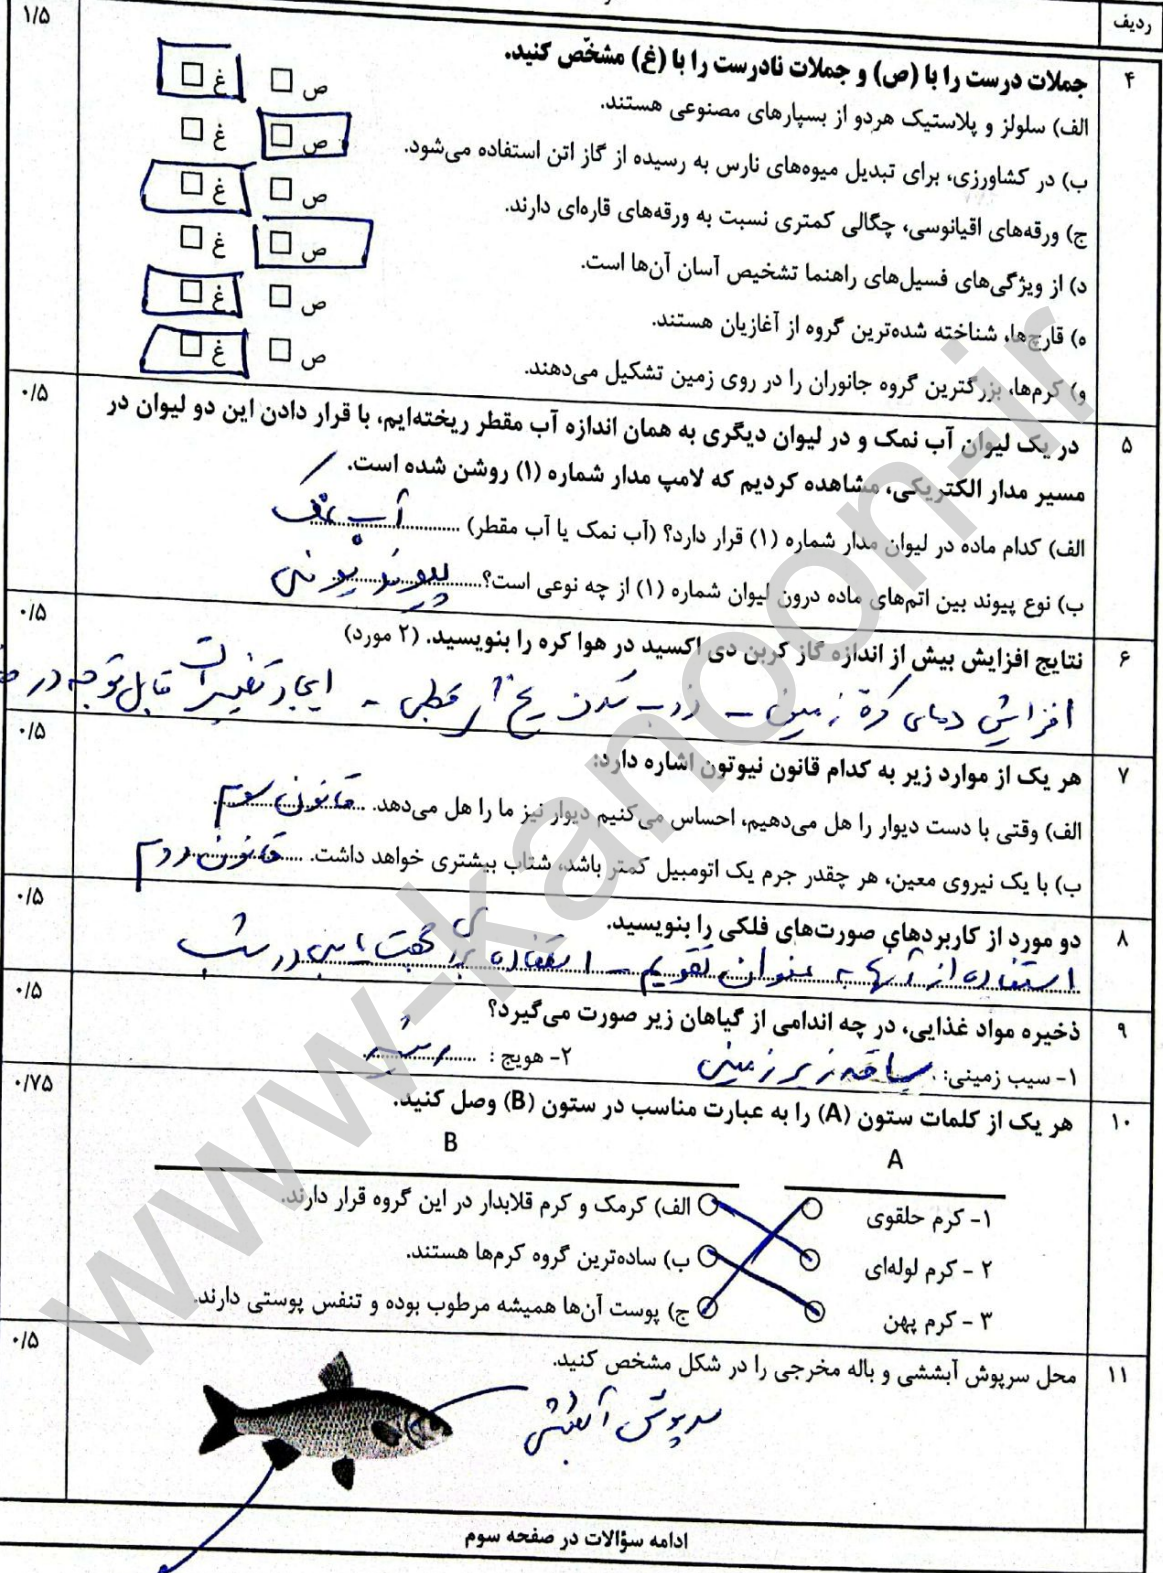 ردیف
۱/۵
۴
جملات درست را با (ص) و جملات نادرست را با (غ) مشخّص کنید.
الف) سلولز و پلاستیک هردو از بسپارهای مصنوعی هستند. ص □ غ □
ب) در کشاورزی، برای تبدیل میوه‌های نارس به رسیده از گاز اتن استفاده می‌شود. ص □ غ □
ج) ورقه‌های اقیانوسی، چگالی کمتری نسبت به ورقه‌های قاره‌ای دارند. ص □ غ □
د) از ویژگی‌های فسیل‌های راهنما تشخیص آسان آن‌ها است. ص □ غ □
ه) قارچ‌ها، شناخته شده‌ترین گروه از آغازیان هستند. ص □ غ □
و) کرم‌ها، بزرگترین گروه جانوران را در روی زمین تشکیل می‌دهند. ص □ غ □
۰/۵
۵
در یک لیوان آب نمک و در لیوان دیگری به همان اندازه آب مقطر ریخته‌ایم، با قرار دادن این دو لیوان در
مسیر مدار الکتریکی، مشاهده کردیم که لامپ مدار شماره (۱) روشن شده است.
الف) کدام ماده در لیوان مدار شماره (۱) قرار دارد؟ (آب نمک یا آب مقطر) آب نمک
ب) نوع پیوند بین اتم‌های ماده درون لیوان شماره (۱) از چه نوعی است؟ پیوند یونی
۰/۵
۶
نتایج افزایش بیش از اندازه گاز کربن دی اکسید در هوا کره را بنویسید. (۲ مورد)
افزایش دمای کرهٔ زمین - ذوب شدن یخ های قطبی - ایجاد تغییرات قابل توجه در
۰/۵
۷
هر یک از موارد زیر به کدام قانون نیوتون اشاره دارد:
الف) وقتی با دست دیوار را هل می‌دهیم، احساس می‌کنیم دیوار نیز ما را هل می‌دهد. قانون سوم
ب) با یک نیروی معین، هر چقدر جرم یک اتومبیل کمتر باشد، شتاب بیشتری خواهد داشت. قانون دوم
۰/۵
۸
دو مورد از کاربردهای صورت‌های فلکی را بنویسید.
استفاده از آنها به عنوان تقویم - استفاده برای جهت یابی در شب
۰/۵
۹
ذخیره مواد غذایی، در چه اندامی از گیاهان زیر صورت می‌گیرد؟
۱- سیب زمینی: ساقه زیر زمینی ۲- هویج : ریشه
۰/۷۵
۱۰
هر یک از کلمات ستون (A) را به عبارت مناسب در ستون (B) وصل کنید.
A B
۱- کرم حلقوی الف) کرمک و کرم قلابدار در این گروه قرار دارند.
۲ - کرم لوله‌ای ب) ساده‌ترین گروه کرم‌ها هستند.
۳ - کرم پهن ج) پوست آن‌ها همیشه مرطوب بوده و تنفس پوستی دارند.
۰/۵
۱۱
محل سرپوش آبششی و باله مخرجی را در شکل مشخص کنید.
سرپوش آبششی
ادامه سؤالات در صفحه سوم
www-kanoon-ir